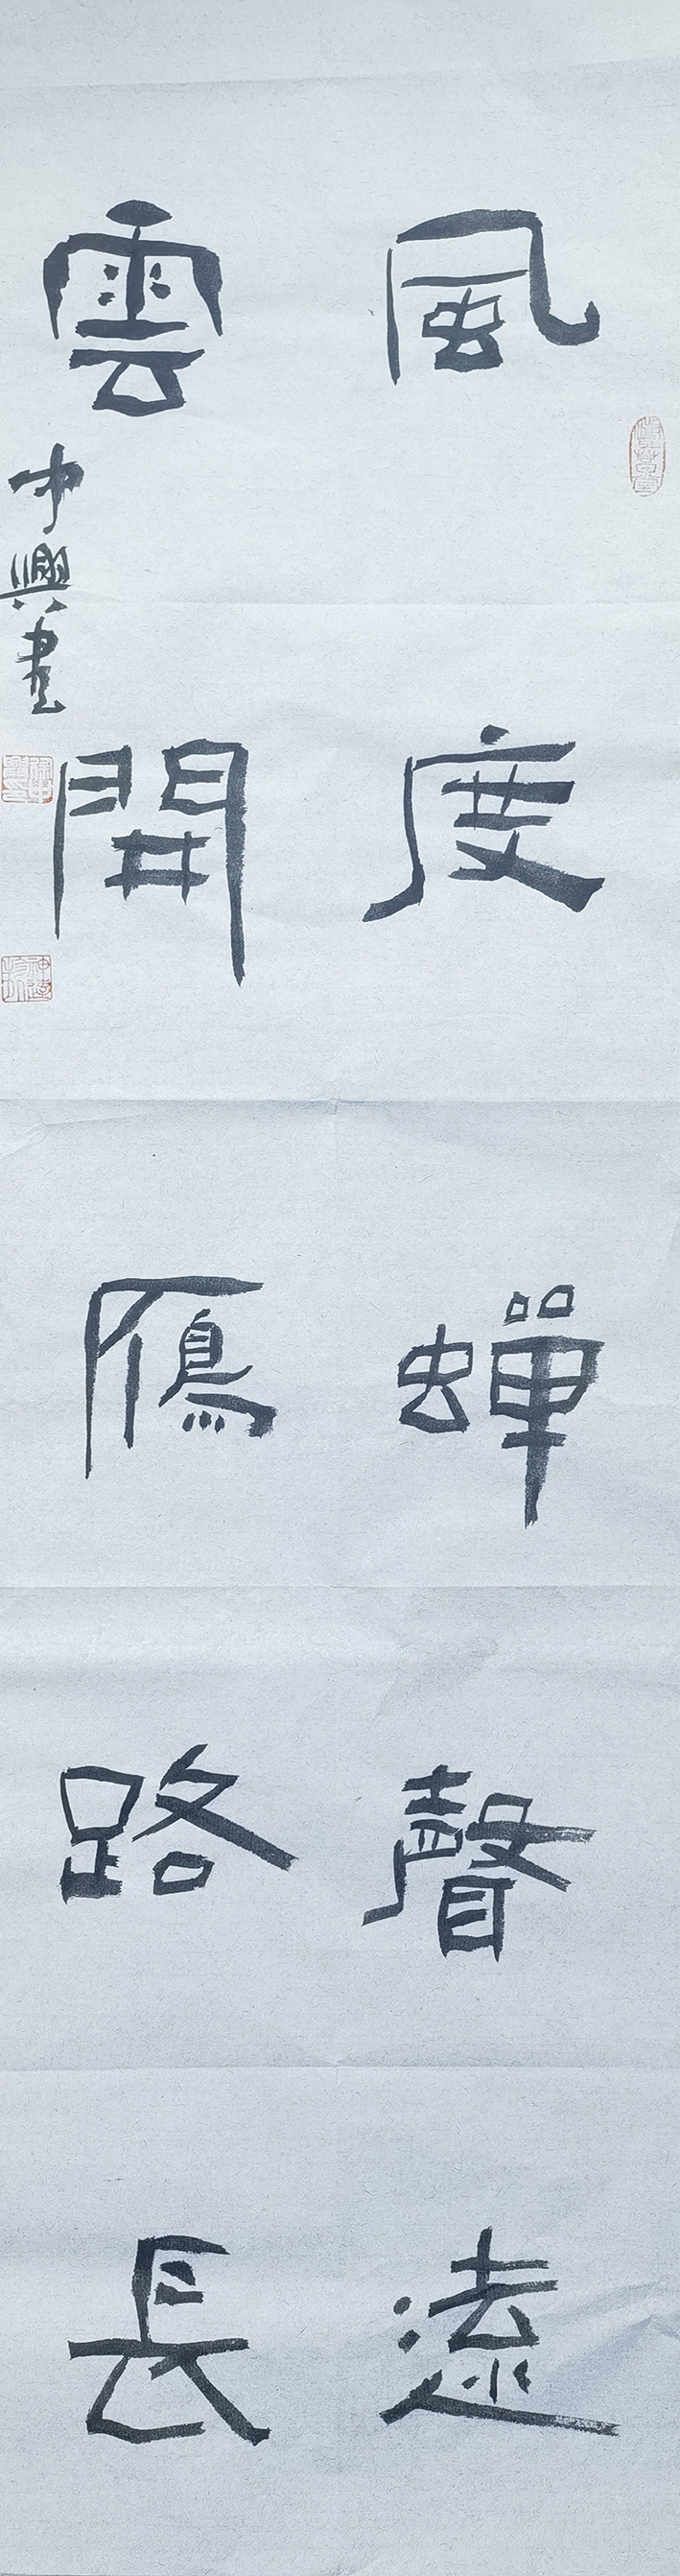 風度蟬聲遠
雲開雁路長
中興書